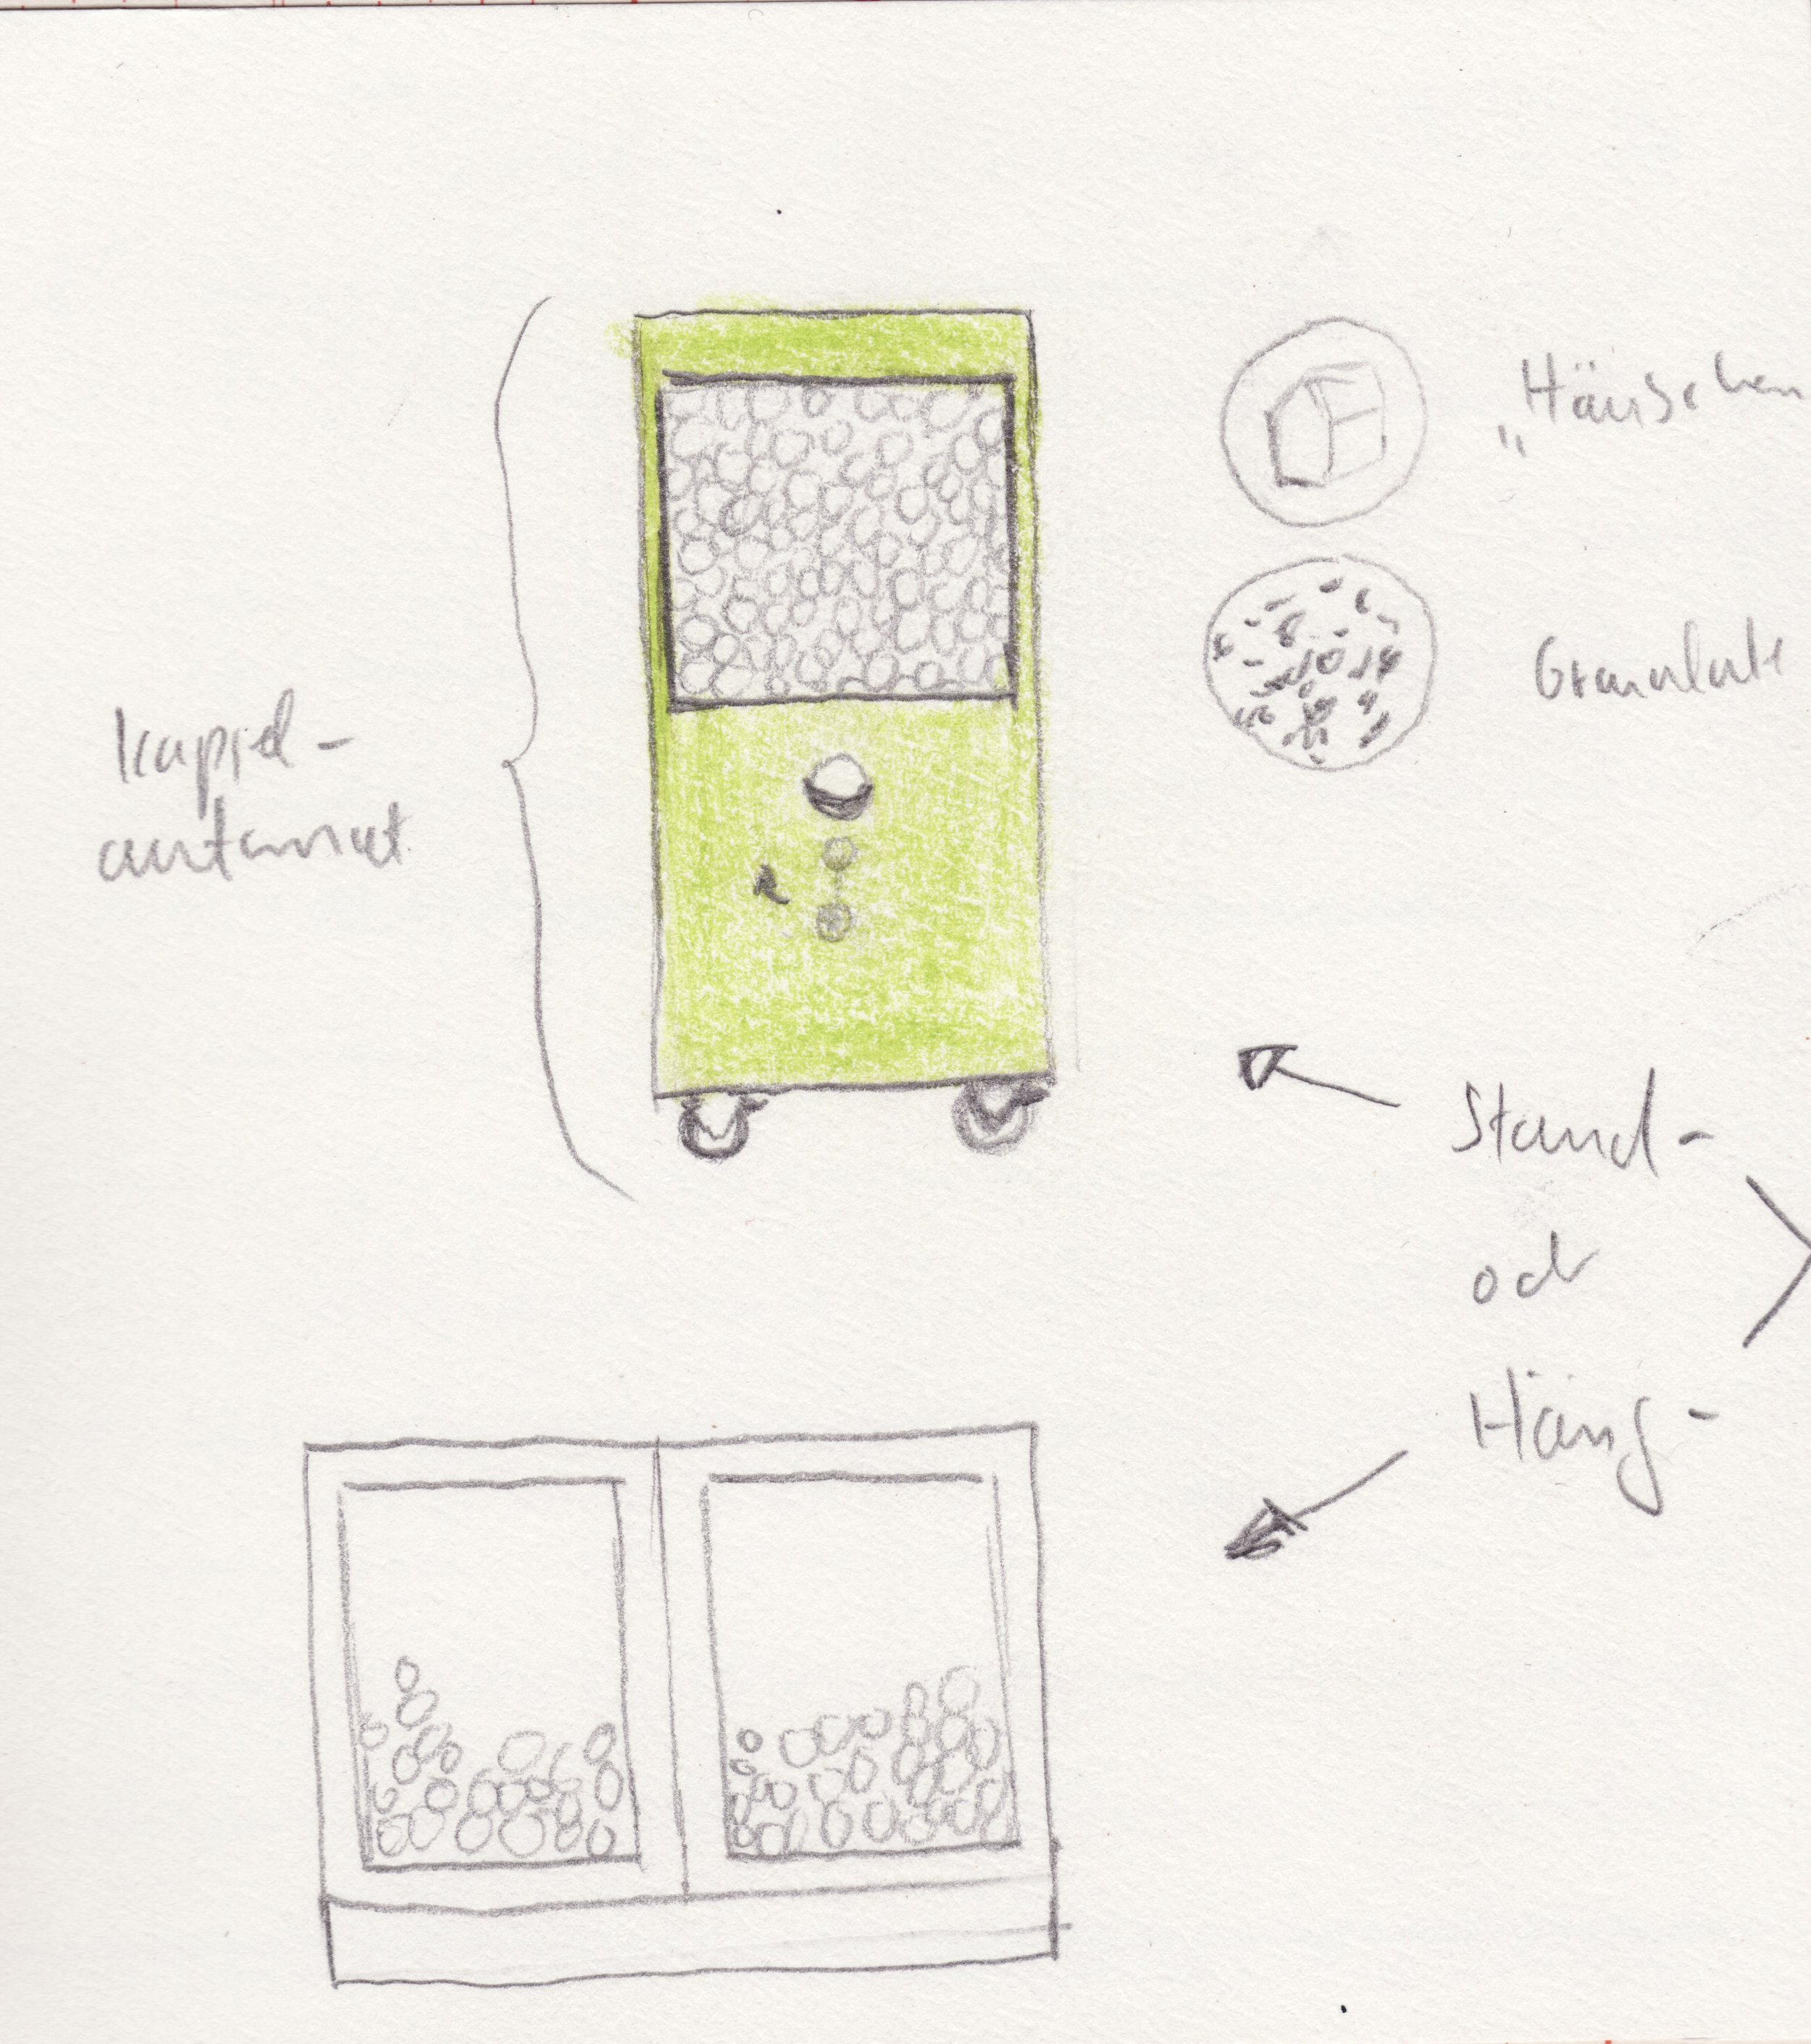 Kapsel-
automat
„Häuschen
Granulate
Stand-
oder
Häng-